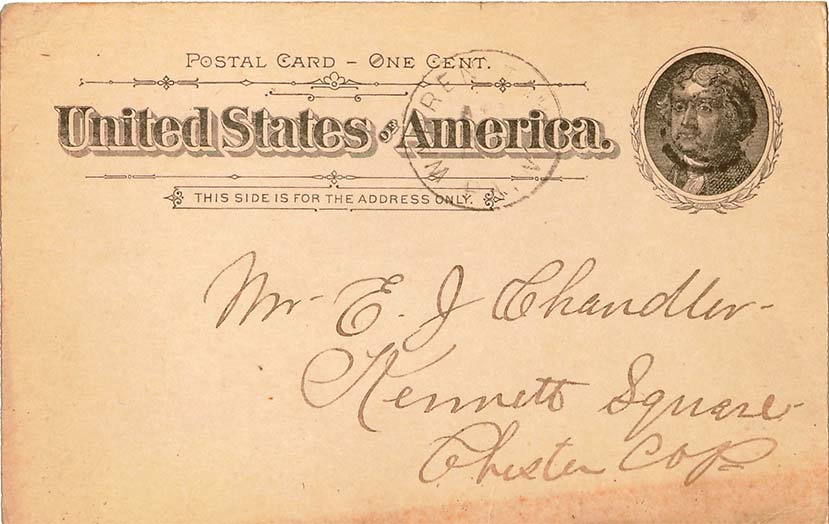 POSTAL CARD – ONE CENT.
United States OF America.
THIS SIDE IS FOR THE ADDRESS ONLY.
Mr- E. J Chandler-
Kennett Square-
Chester Co P